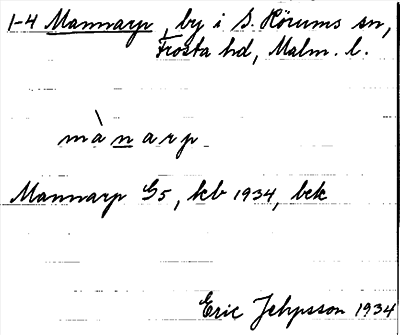 1-4 Mannarp, by i S. Rörums sn,
Frosta hd, Malm. l.
mànarp
Mannarp G5, kb 1934, bek
Eric Jepsson 1934